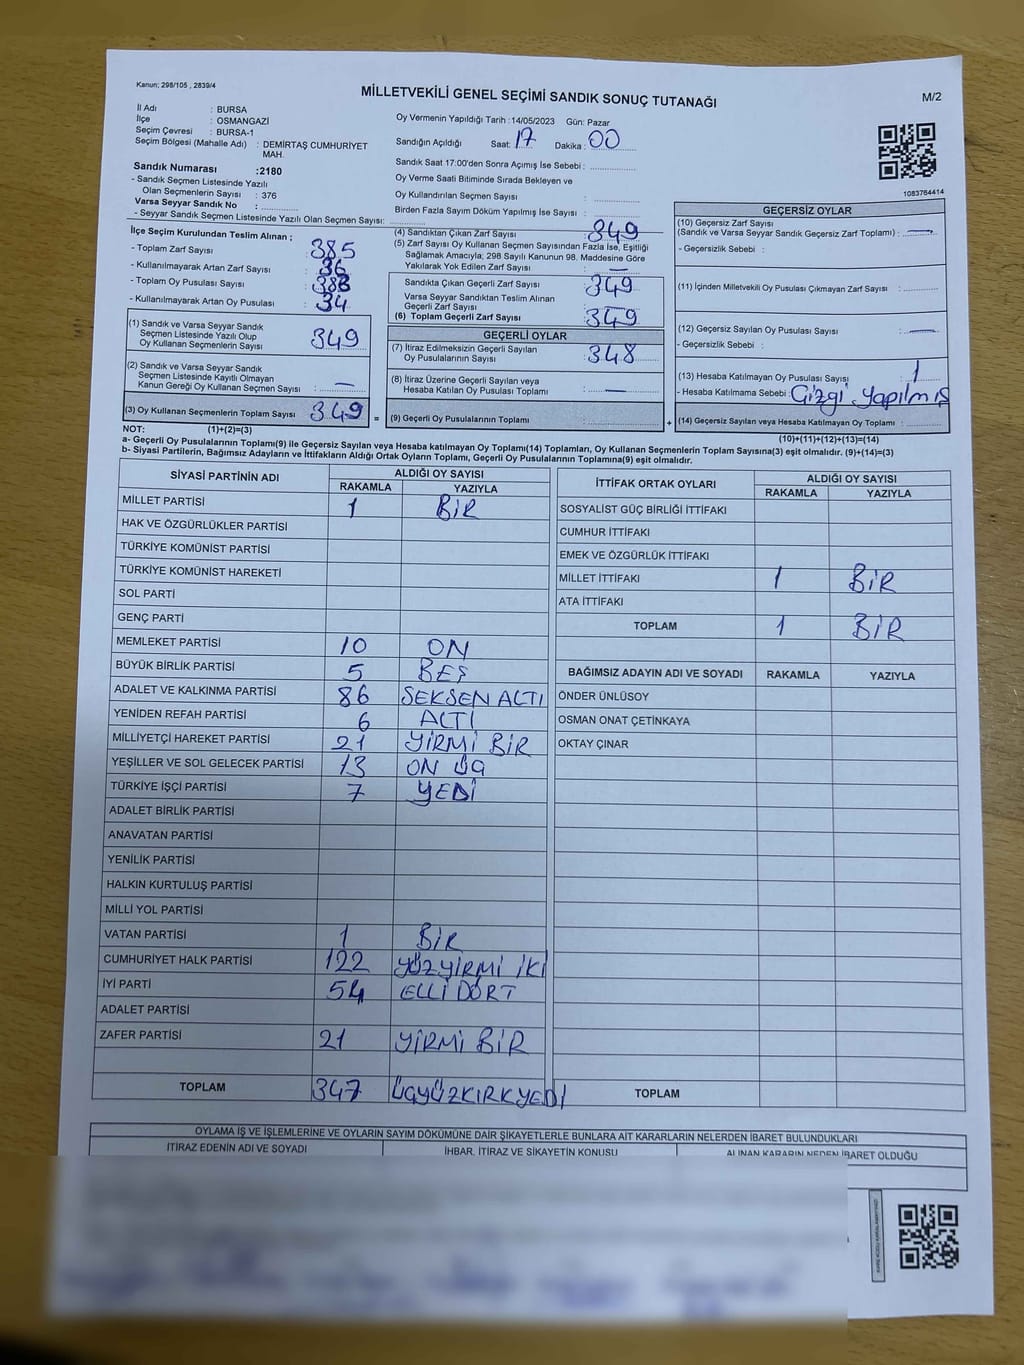 Kanun; 298/105 , 2839/4
MİLLETVEKİLİ GENEL SEÇİMİ SANDIK SONUÇ TUTANAĞI
M/2
İl Adı : BURSA
İlçe : OSMANGAZİ
Seçim Çevresi : BURSA-1
Seçim Bölgesi (Mahalle Adı) : DEMİRTAŞ CUMHURİYET MAH.
Sandık Numarası :2180
- Sandık Seçmen Listesinde Yazılı
Olan Seçmenlerin Sayısı : 376
Varsa Seyyar Sandık No :
- Seyyar Sandık Seçmen Listesinde Yazılı Olan Seçmen Sayısı:
Oy Vermenin Yapıldığı Tarih :14/05/2023 Gün: Pazar
Sandığın Açıldığı Saat: 17 Dakika : 00
Sandık Saat 17:00'den Sonra Açımış İse Sebebi :
Oy Verme Saati Bitiminde Sırada Bekleyen ve
Oy Kullandırılan Seçmen Sayısı :
Birden Fazla Sayım Döküm Yapılmış İse Sayısı :
1083764414
İlçe Seçim Kurulundan Teslim Alınan ;
- Toplam Zarf Sayısı : 385
- Kullanılmayarak Artan Zarf Sayısı : 36
- Toplam Oy Pusulası Sayısı : 383
- Kullanılmayarak Artan Oy Pusulası : 34
(1) Sandık ve Varsa Seyyar Sandık
Seçmen Listesinde Yazılı Olup
Oy Kullanan Seçmenlerin Sayısı : 349
(2) Sandık ve Varsa Seyyar Sandık
Seçmen Listesinde Kayıtlı Olmayan
Kanun Gereği Oy Kullanan Seçmen Sayısı : —
(3) Oy Kullanan Seçmenlerin Toplam Sayısı : 349
(4) Sandıktan Çıkan Zarf Sayısı : 349
(5) Zarf Sayısı Oy Kullanan Seçmen Sayısından Fazla İse, Eşitliği
Sağlamak Amacıyla; 298 Sayılı Kanunun 98. Maddesine Göre
Yakılarak Yok Edilen Zarf Sayısı : —
Sandıkta Çıkan Geçerli Zarf Sayısı : 349
Varsa Seyyar Sandıktan Teslim Alınan
Geçerli Zarf Sayısı :
(6) Toplam Geçerli Zarf Sayısı : 349
GEÇERLİ OYLAR
(7) İtiraz Edilmeksizin Geçerli Sayılan
Oy Pusulalarının Sayısı : 348
(8) İtiraz Üzerine Geçerli Sayılan veya
Hesaba Katılan Oy Pusulası Toplamı : —
= (9) Geçerli Oy Pusulalarının Toplamı :
GEÇERSİZ OYLAR
(10) Geçersiz Zarf Sayısı
(Sandık ve Varsa Seyyar Sandık Geçersiz Zarf Toplamı) : —
- Geçersizlik Sebebi :
(11) İçinden Milletvekili Oy Pusulası Çıkmayan Zarf Sayısı :
(12) Geçersiz Sayılan Oy Pusulası Sayısı : —
- Geçersizlik Sebebi :
(13) Hesaba Katılmayan Oy Pusulası Sayısı : 1
- Hesaba Katılmama Sebebi : Çizgi Yapılmış
+ (14) Geçersiz Sayılan veya Hesaba Katılmayan Oy Toplamı :
NOT: (1)+(2)=(3)
(10)+(11)+(12)+(13)=(14)
a- Geçerli Oy Pusulalarının Toplamı(9) ile Geçersiz Sayılan veya Hesaba katılmayan Oy Toplamı(14) Toplamları, Oy Kullanan Seçmenlerin Toplam Sayısına(3) eşit olmalıdır. (9)+(14)=(3)
b- Siyasi Partilerin, Bağımsız Adayların ve İttifakların Aldığı Ortak Oyların Toplamı, Geçerli Oy Pusulalarının Toplamına(9) eşit olmalıdır.
SİYASİ PARTİNİN ADI ALDIĞI OY SAYISI
RAKAMLA YAZIYLA
MİLLET PARTİSİ 1 BİR
HAK VE ÖZGÜRLÜKLER PARTİSİ
TÜRKİYE KOMÜNİST PARTİSİ
TÜRKİYE KOMÜNİST HAREKETİ
SOL PARTİ
GENÇ PARTİ
MEMLEKET PARTİSİ 10 ON
BÜYÜK BİRLİK PARTİSİ 5 BEŞ
ADALET VE KALKINMA PARTİSİ 86 SEKSEN ALTI
YENİDEN REFAH PARTİSİ 6 ALTI
MİLLİYETÇİ HAREKET PARTİSİ 21 YİRMİ BİR
YEŞİLLER VE SOL GELECEK PARTİSİ 13 ON ÜÇ
TÜRKİYE İŞÇİ PARTİSİ 7 YEDİ
ADALET BİRLİK PARTİSİ
ANAVATAN PARTİSİ
YENİLİK PARTİSİ
HALKIN KURTULUŞ PARTİSİ
MİLLİ YOL PARTİSİ
VATAN PARTİSİ 1 BİR
CUMHURİYET HALK PARTİSİ 122 YÜZYİRMİ İKİ
İYİ PARTİ 54 ELLİ DÖRT
ADALET PARTİSİ
ZAFER PARTİSİ 21 YİRMİ BİR
TOPLAM 347 ÜÇYÜZKIRKYEDİ
İTTİFAK ORTAK OYLARI ALDIĞI OY SAYISI
RAKAMLA YAZIYLA
SOSYALİST GÜÇ BİRLİĞİ İTTİFAKI
CUMHUR İTTİFAKI
EMEK VE ÖZGÜRLÜK İTTİFAKI
MİLLET İTTİFAKI 1 BİR
ATA İTTİFAKI
TOPLAM 1 BİR
BAĞIMSIZ ADAYIN ADI VE SOYADI RAKAMLA YAZIYLA
ÖNDER ÜNLÜSOY
OSMAN ONAT ÇETİNKAYA
OKTAY ÇINAR
TOPLAM
OYLAMA İŞ VE İŞLEMLERİNE VE OYLARIN SAYIM DÖKÜMÜNE DAİR ŞİKAYETLERLE BUNLARA AİT KARARLARIN NELERDEN İBARET BULUNDUKLARI
İTİRAZ EDENİN ADI VE SOYADI İHBAR, İTİRAZ VE ŞİKAYETİN KONUSU ALINAN KARARIN NEDEN İBARET OLDUĞU